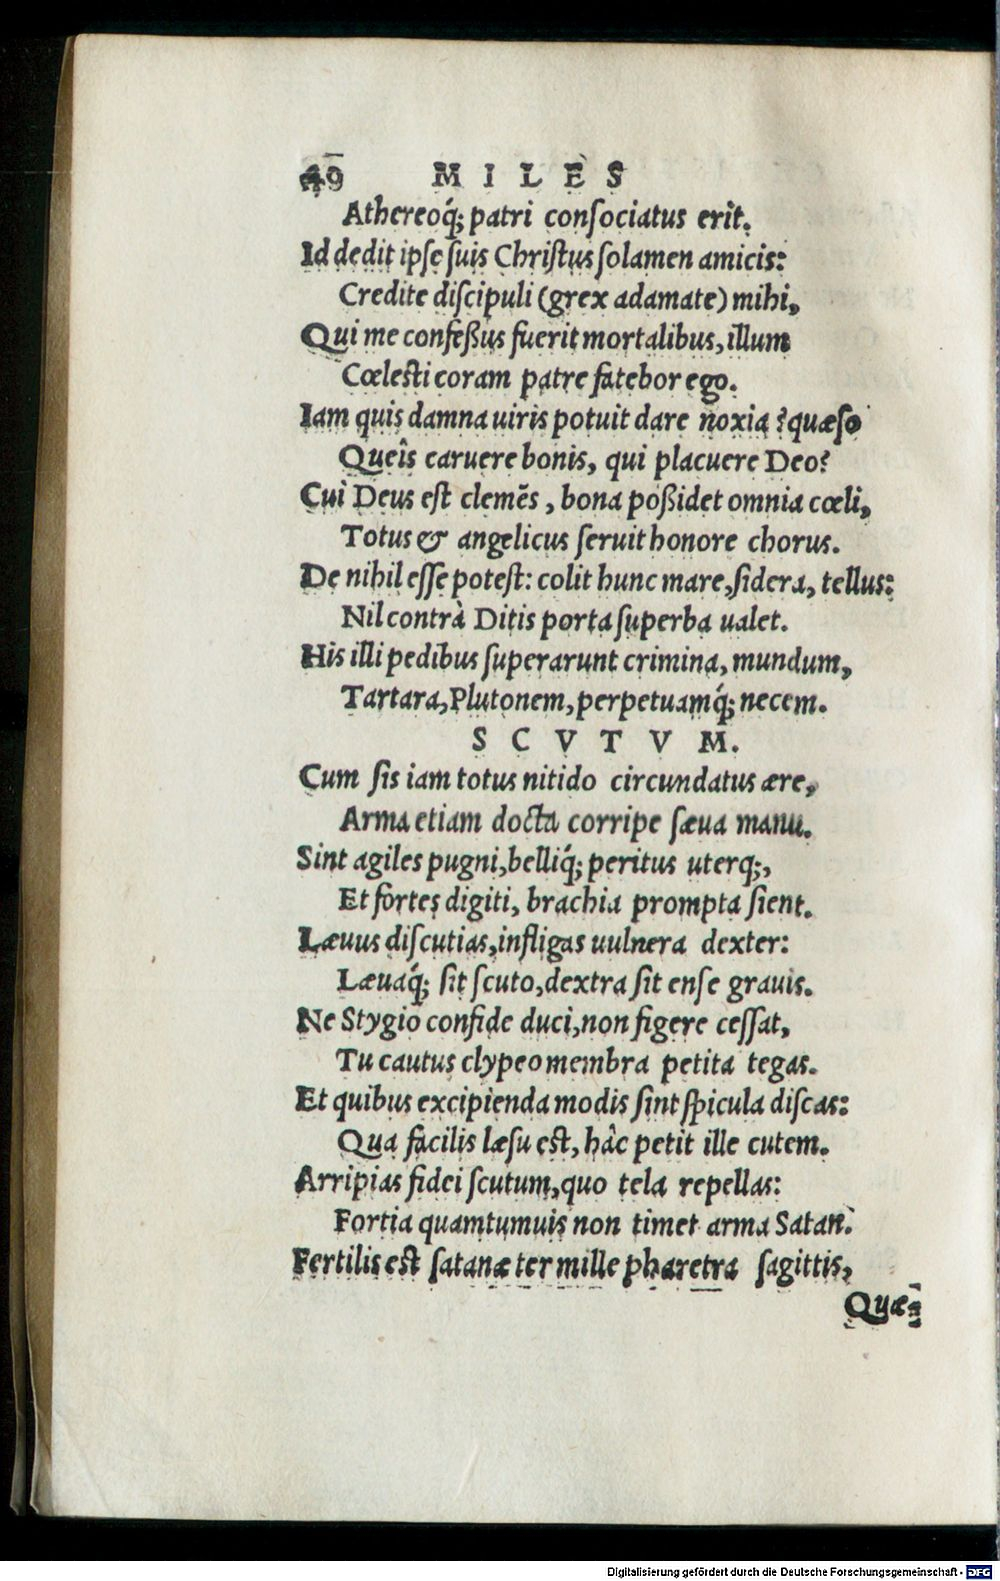 49 MILES
Athereoq́; patri conſociatus erit.
Id dedit ipſe ſuis Chriſtus ſolamen amicis:
Credite diſcipuli (grex adamate) mihi,
Qui me confeßus fuerit mortalibus, illum
Cœleſti coram patre fatebor ego.
Iam quis damna uiris potuit dare noxia? quæſo
Queîs caruere bonis, qui placuere Deo?
Cui Deus eſt clemẽs, bona poßidet omnia cœli,
Totus & angelicus ſeruit honore chorus.
De nihil eſſe poteſt: colit hunc mare, ſidera, tellus:
Nil contrà Ditis porta ſuperba ualet.
His illi pedibus ſuperarunt crimina, mundum,
Tartara, Plutonem, perpetuamq́; necem.
SCVTVM.
Cum ſis iam totus nitido circundatus ære,
Arma etiam docta corripe ſæua manu.
Sint agiles pugni, belliq́; peritus uterq;,
Et fortes digiti, brachia prompta ſient.
Læuus diſcutias, infligas uulnera dexter:
Læuaq́; ſit ſcuto, dextra ſit enſe grauis.
Ne Stygio confide duci, non figere ceſſat,
Tu cautus clypeo membra petita tegas.
Et quibus excipienda modis ſint ſpicula diſcas:
Qua facilis læſu eſt, hâc petit ille cutem.
Arripias fidei ſcutum, quo tela repellas:
Fortia quamtumuis non timet arma Satan.
Fertilis eſt ſatanæ ter mille pharetra ſagittis,
Quæ-
Digitalisierung gefördert durch die Deutsche Forschungsgemeinschaft - DFG